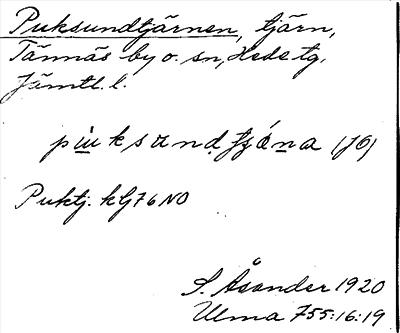 Puksundtjärnen, tjärn,
Tännäs by o. sn, Hede tg,
Jämtl. l.
Puktj. kG76NO
S. Åsander 1920
Ulma 755:16:19